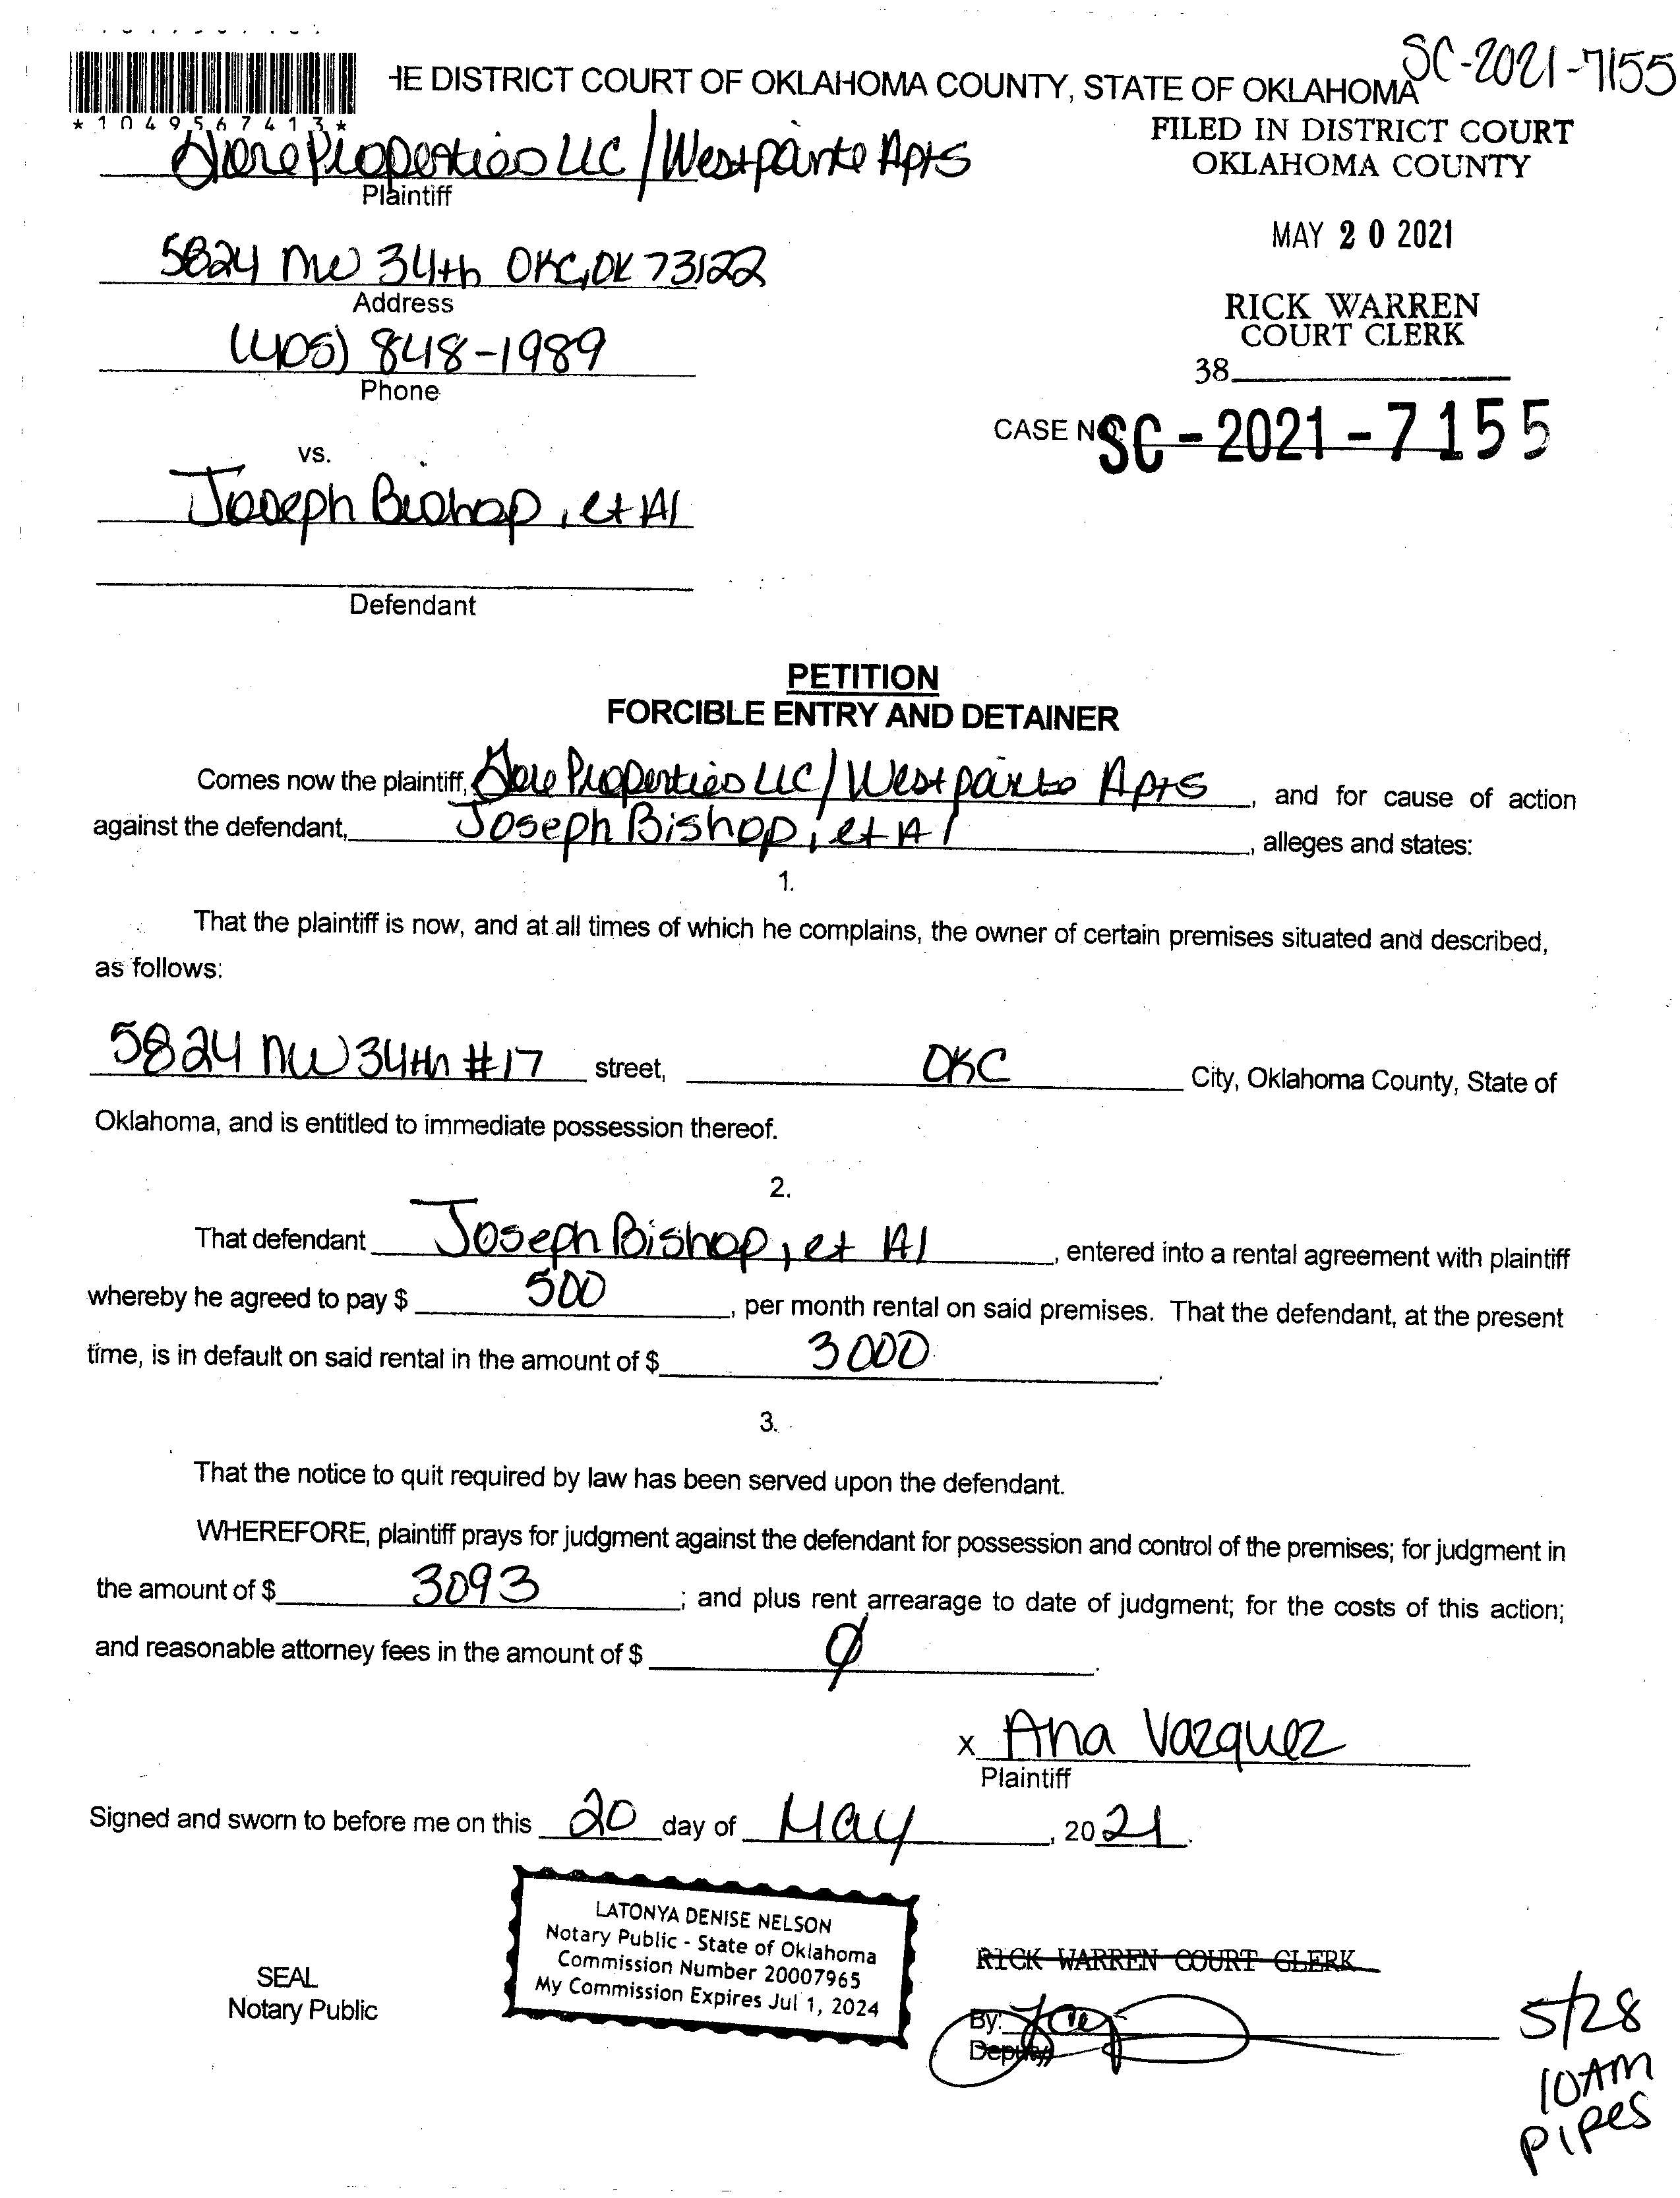 SC-2021-7155
HE DISTRICT COURT OF OKLAHOMA COUNTY, STATE OF OKLAHOMA
*1049567413*
FILED IN DISTRICT COURT
OKLAHOMA COUNTY
Properties LLC / Westpointe Apts
Plaintiff
MAY 20 2021
5824 NW 34th OKC, OK 73122
Address
RICK WARREN
COURT CLERK
(405) 848-1989
Phone
38
CASE NO. SC-2021-7155
vs.
Joseph Bishop, et Al
Defendant
PETITION
FORCIBLE ENTRY AND DETAINER
Comes now the plaintiff, Properties LLC / Westpointe Apts, and for cause of action
against the defendant, Joseph Bishop, et Al, alleges and states:
1.
That the plaintiff is now, and at all times of which he complains, the owner of certain premises situated and described,
as follows:
5824 NW 34th #17 street, OKC City, Oklahoma County, State of
Oklahoma, and is entitled to immediate possession thereof.
2.
That defendant Joseph Bishop, et Al, entered into a rental agreement with plaintiff
whereby he agreed to pay $ 500, per month rental on said premises. That the defendant, at the present
time, is in default on said rental in the amount of $ 3000.
3.
That the notice to quit required by law has been served upon the defendant.
WHEREFORE, plaintiff prays for judgment against the defendant for possession and control of the premises; for judgment in
the amount of $ 3093; and plus rent arrearage to date of judgment; for the costs of this action;
and reasonable attorney fees in the amount of $ Ø.
x Ana Vazquez
Plaintiff
Signed and sworn to before me on this 20 day of May, 2021.
LATONYA DENISE NELSON
Notary Public - State of Oklahoma
Commission Number 20007965
My Commission Expires Jul 1, 2024
SEAL
Notary Public
RICK WARREN COURT CLERK
By:
Deputy
5/28
10AM
PIPES